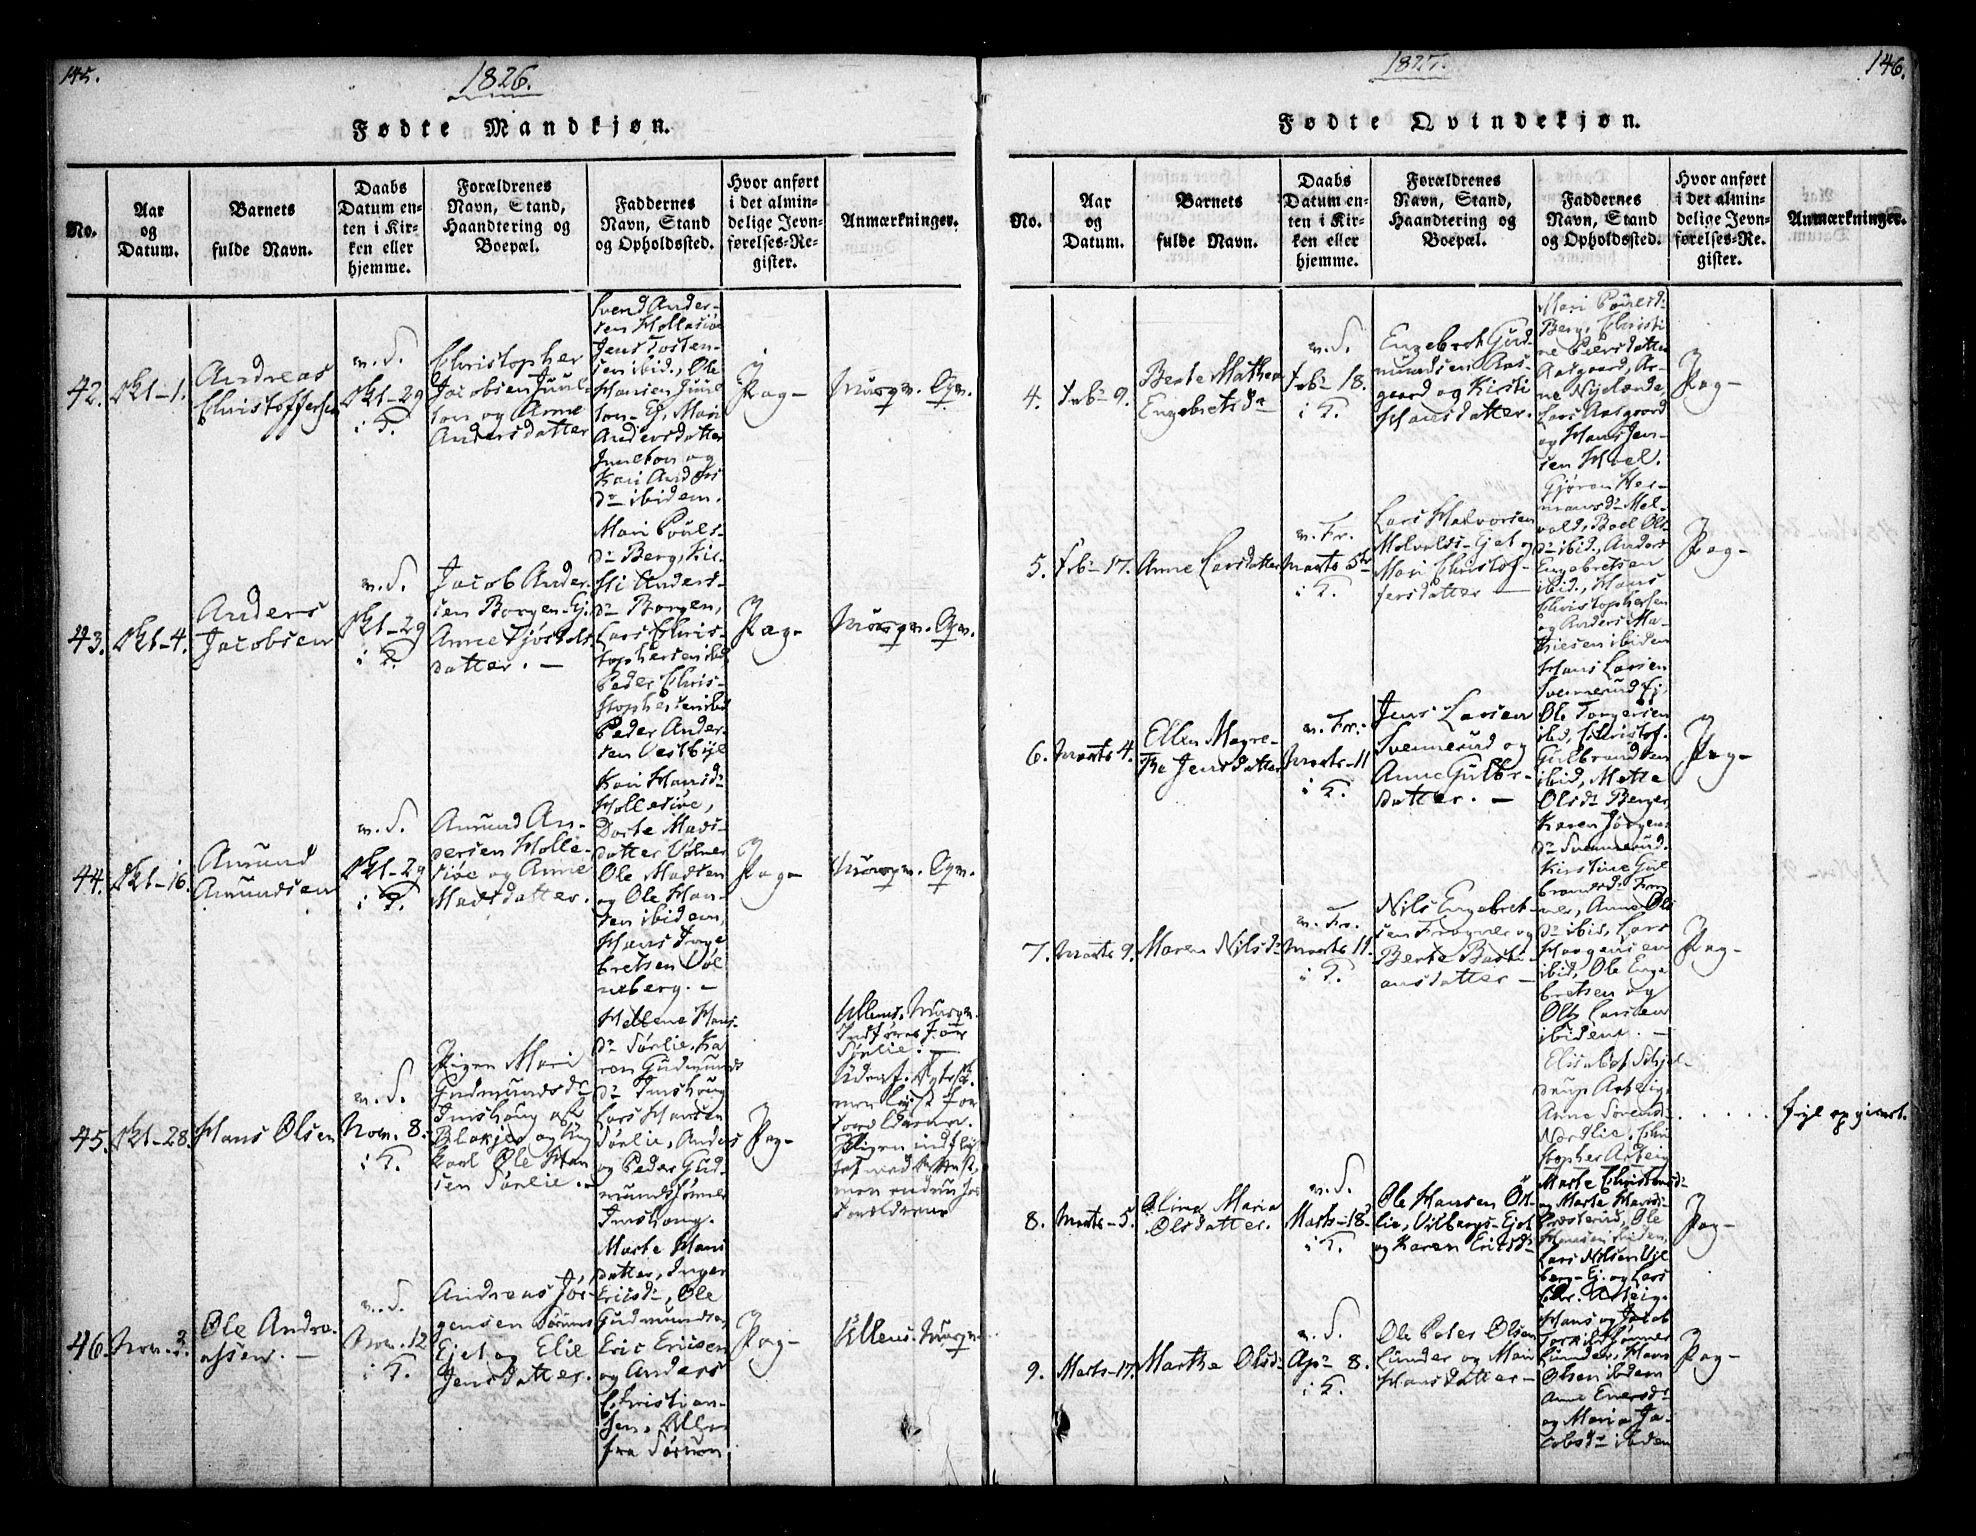 145.
1826.
Fødte Mandkjøn.
No.
Aar
og
Datum.
Barnets
fulde Navn.
Daabs
Datum en-
ten i Kir-
ken eller
hjemme.
Forældrenes
Navn, Stand,
Haandtering og
Boepæl.
Faddernes
Navn, Stand
og Opholdssted.
Hvor anført
i det almin-
delige Jevn-
førelses-Re-
gister.
Anmærkninger.
42.
Okt-1.
Andreas
Christoffersen
Okt-29
i K.
Christopher
Jacobsen Juul-
ton og Anne
Andersdatter
Svend Ander-
sen Hollesiøe
Jens Tosten-
sen ibid, Ole
Hansen Juul-
ton-Ej, Mari
Andersdatter
Juulton og
Kari Anders
dr ibidem.
Pag-
43.
Okt-4.
Anders
Jacobsen
Okt-29
i K.
Jacob Ander-
sen Borgen-Ej.
Anne Tjøstols
datter. —
Mari Pouls-
dr Berg, Kir-
sti Anders
dr Borgen,
Lars Chris-
tophersen ibid
Peder Chris-
tophersen ibid
Peder Ander-
sen Vestbye
Pag-
44.
Okt-16.
Amund
Amundsen
Okt-29
i K.
Amund An-
dersen Holle-
siøe og Anne
Madsdatter.
Kari Hansdr
Hollesiøe,
Dorte Mads-
datter
Ole Madsen
og Ole Han-
sen ibidem,
Hans Inge
bretsen
berg. —
Pag-
45.
Okt-28.
Hans Olsen
Nov. 8.
i K.
Pigen Mari
Gudmundsdr
Imshoug af
Blakjer og Ung
karl Ole Han
sen Sørlie. —
Hellene Hans-
dr Sørlie, Ka
ren Gudmunds
dr Imshoug
Lars Hansen
Sørlie, Anders
og Peder Gud-
mundsønner
Imshoug.
Pag-
Sørlie. —
46.
Nov. 3.
Ole Andre-
assen. —
Nov. 12
i K.
Andreas Jør-
gensen Sørum
Ejet og Elie
Jensdatter.
Marte Hans
datter, Inger
Ericsdr, Ole
Gudmundsen
Eric Ericsen
og Anders
Christian-
sen, Alle
fra Sørum.
Pag-
1827.
146.
Fødte Qvindekjøn.
No.
Aar
og
Datum.
Barnets
fulde Navn.
Daabs
Datum en-
ten i Kir-
ken eller
hjemme.
Forældrenes
Navn, Stand,
Haandtering og
Boepæl.
Faddernes
Navn, Stand
og Opholdssted.
Hvor anført
i det almin-
delige Jevn-
førelses-Re-
gister.
Anmærkninger.
4.
Febr 9.
Berte Mathea
Engebretsdr
Febr 18.
i K.
Engebret Gud-
mundsen Aas-
gaard og Kirsti
Hansdatter.
Mari Poulsdr
Berg, Christi
ne Peersdatter
Aasgaard, Ar-
ne Nyelænde
Lars Aasgaard
og Hans Jen-
sen Hvel.
Pag-
5.
Febr 17.
Anne Larsdatter
Marts 5te
i K.
Lars Halvorsen
Melvolds-Ejet og
Mari Christof-
fersdatter —
Gjøran Her-
mansdr Mel-
vold, Boel Ols
dr ibid, Anders
Engebretsen
ibid, Hans
Christophersen
og Anders Ma-
thiesen ibidem
Pag-
6.
Marts 4.
Ellen Magre-
the Jensdatter
Marts-11
i K.
Jens Larsen
Svennerud og
Anne Gulbr-
datter. —
Hans Larsen
Svennerud Ej
Ole Torgersen
ibid, Christof.
Gulbrandsen
ibid, Mette
Olsdr Berger
Karen Jørgens
dr Svennerud.
Pag-
7.
Marts 9.
Maren Nilsdr
Marts 11.
i K.
Nils Engebret-
sen Frogner og
Berte Basti-
ansdatter —
Kirstine Gul
brandsdr Frog
ner, Anne Ols
dr ibid, Lars
Haagensen
ibid, Ole Enge
bretsen og
Ole Larsen
ibidem. —
Pag-
Anne Sørensdr
Nordlie, Chri
stopher Asteig
fejl opgivet.
8.
Marts-5.
Oline Maria
Olsdatter.
Marts-18.
i K.
Ole Hansen Ost-
lie, Vilbergs-Ejet
og Karen Ericsdr
Marte Christensdr
og Marte Hansdr
Ole
Hansen ibidem,
Lars Nilsen Vil
berg-Ej. og Lars
Chr. Asteig.
Pag-
9.
Marts-17.
Marthe Olsdr
Apr 8.
i K.
Ole Peter Olsen
Lunder og Mari
Hansdatter —
Hans og Jacob
Lunder, Hans
Olsen ibidem
Anne Eversdr
og Maria Ja-
cobsdr ibidem
Pag-